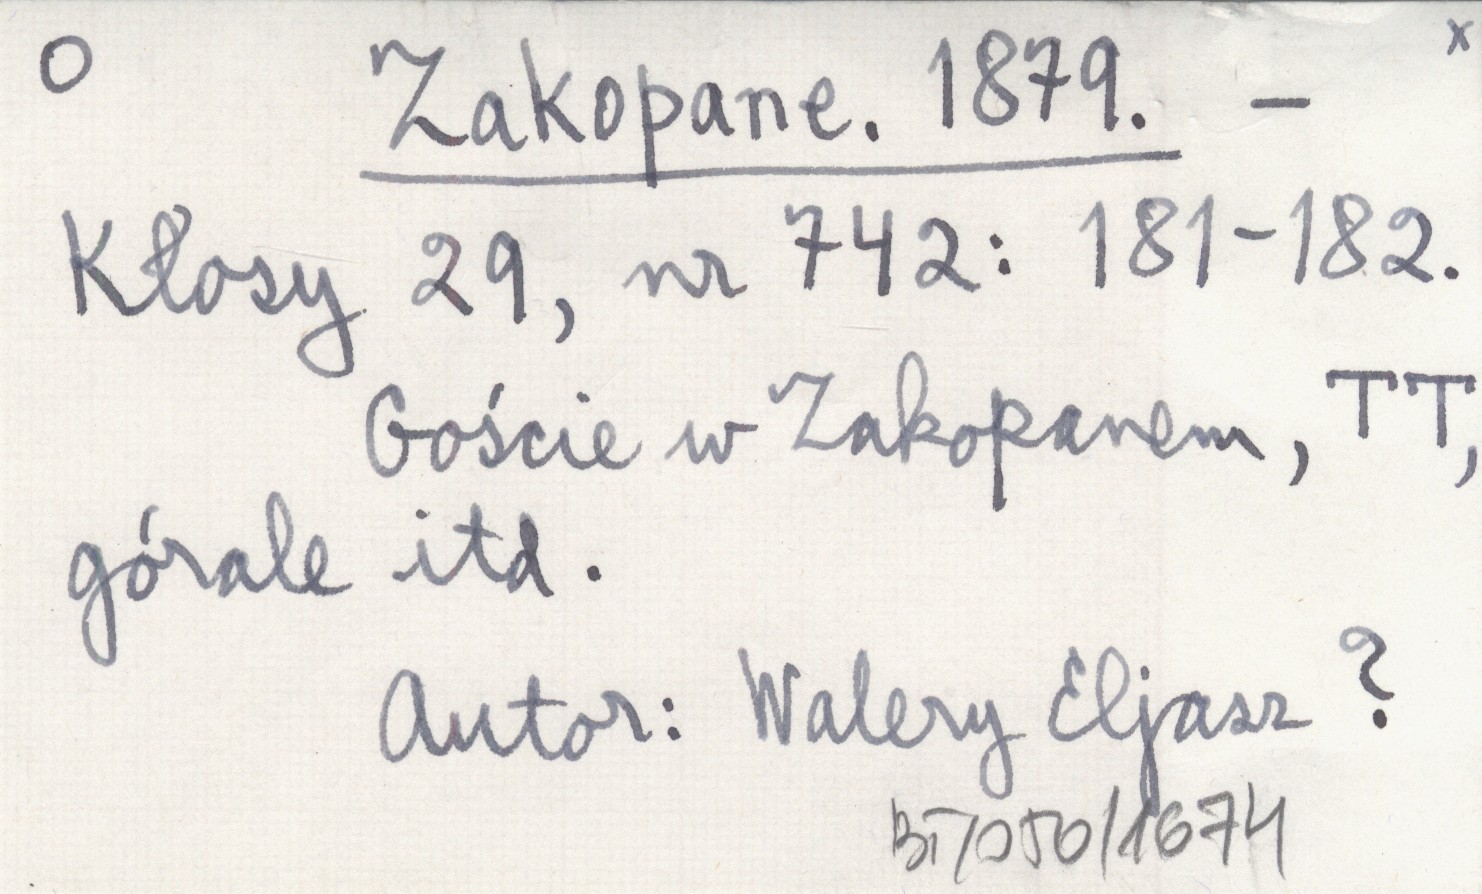 O Zakopane. 1879. — x
Kłosy 29, nr 742: 181-182.
Goście w Zakopanem, TT,
górale itd.
Autor: Walery Eljasz ?
BT/050/1674